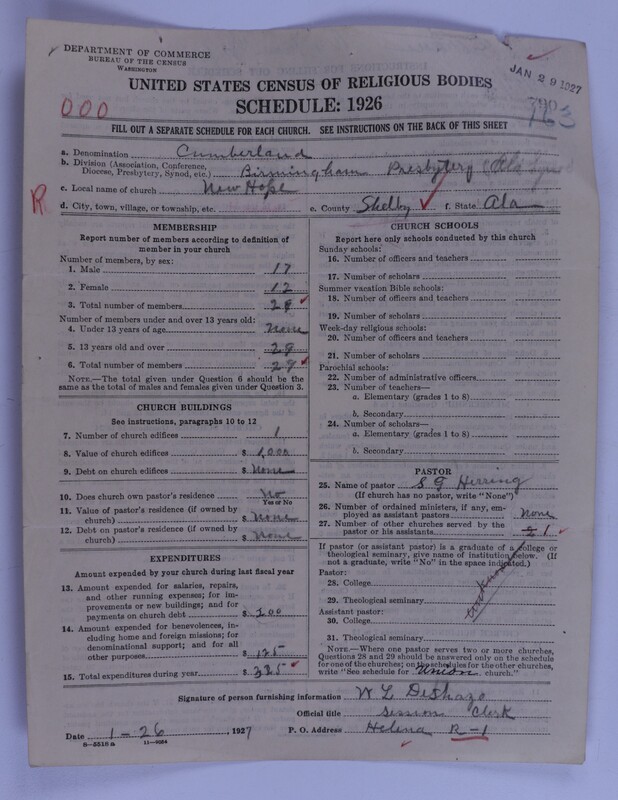 DEPARTMENT OF COMMERCE
BUREAU OF THE CENSUS
WASHINGTON
JAN 29 1927
UNITED STATES CENSUS OF RELIGIOUS BODIES
SCHEDULE: 1926
000
390
163
FILL OUT A SEPARATE SCHEDULE FOR EACH CHURCH. SEE INSTRUCTIONS ON THE BACK OF THIS SHEET
a. Denomination Cumberland
b. Division (Association, Conference, Diocese, Presbytery, Synod, etc.) Birmingham Presbytery (Ala
R
c. Local name of church New Hope
d. City, town, village, or township, etc. e. County Shelby f. State Ala
MEMBERSHIP
Report number of members according to definition of member in your church
Number of members, by sex:
1. Male 17
2. Female 12
3. Total number of members 29
Number of members under and over 13 years old:
4. Under 13 years of age None
5. 13 years old and over 29
6. Total number of members 29
NOTE.—The total given under Question 6 should be the
same as the total of males and females given under Question 3.
CHURCH BUILDINGS
See instructions, paragraphs 10 to 12
7. Number of church edifices 1
8. Value of church edifices $ 1,000
9. Debt on church edifices $ None
10. Does church own pastor's residence No
Yes or No
11. Value of pastor's residence (if owned by
church) $ None
12. Debt on pastor's residence (if owned by
church) $ None
EXPENDITURES
Amount expended by your church during last fiscal year
13. Amount expended for salaries, repairs,
and other running expenses; for im-
provements or new buildings; and for
payments on church debt $ 200
14. Amount expended for benevolences, in-
cluding home and foreign missions; for
denominational support; and for all
other purposes $ 125
15. Total expenditures during year $ 325
CHURCH SCHOOLS
Report here only schools conducted by this church
Sunday schools:
16. Number of officers and teachers
17. Number of scholars
Summer vacation Bible schools:
18. Number of officers and teachers
19. Number of scholars
Week-day religious schools:
20. Number of officers and teachers
21. Number of scholars
Parochial schools:
22. Number of administrative officers
23. Number of teachers—
a. Elementary (grades 1 to 8)
b. Secondary
24. Number of scholars—
a. Elementary (grades 1 to 8)
b. Secondary
PASTOR
25. Name of pastor S G Herring
(If church has no pastor, write "None")
26. Number of ordained ministers, if any, em-
ployed as assistant pastors None
27. Number of other churches served by the
pastor or his assistants 1
If pastor (or assistant pastor) is a graduate of a college or
theological seminary, give name of institution below. (If
not a graduate, write "No" in the space indicated.)
Pastor:
28. College
29. Theological seminary
Assistant pastor:
30. College
31. Theological seminary
NOTE.—Where one pastor serves two or more churches,
Questions 28 and 29 should be answered only on the schedule
for one of the churches; on the schedules for the other churches,
write "See schedule for Union church."
Signature of person furnishing information W L DeShazo
Official title Session Clerk
Date 1-26, 1927 P. O. Address Helena R-1
8-5518 a 11-9054